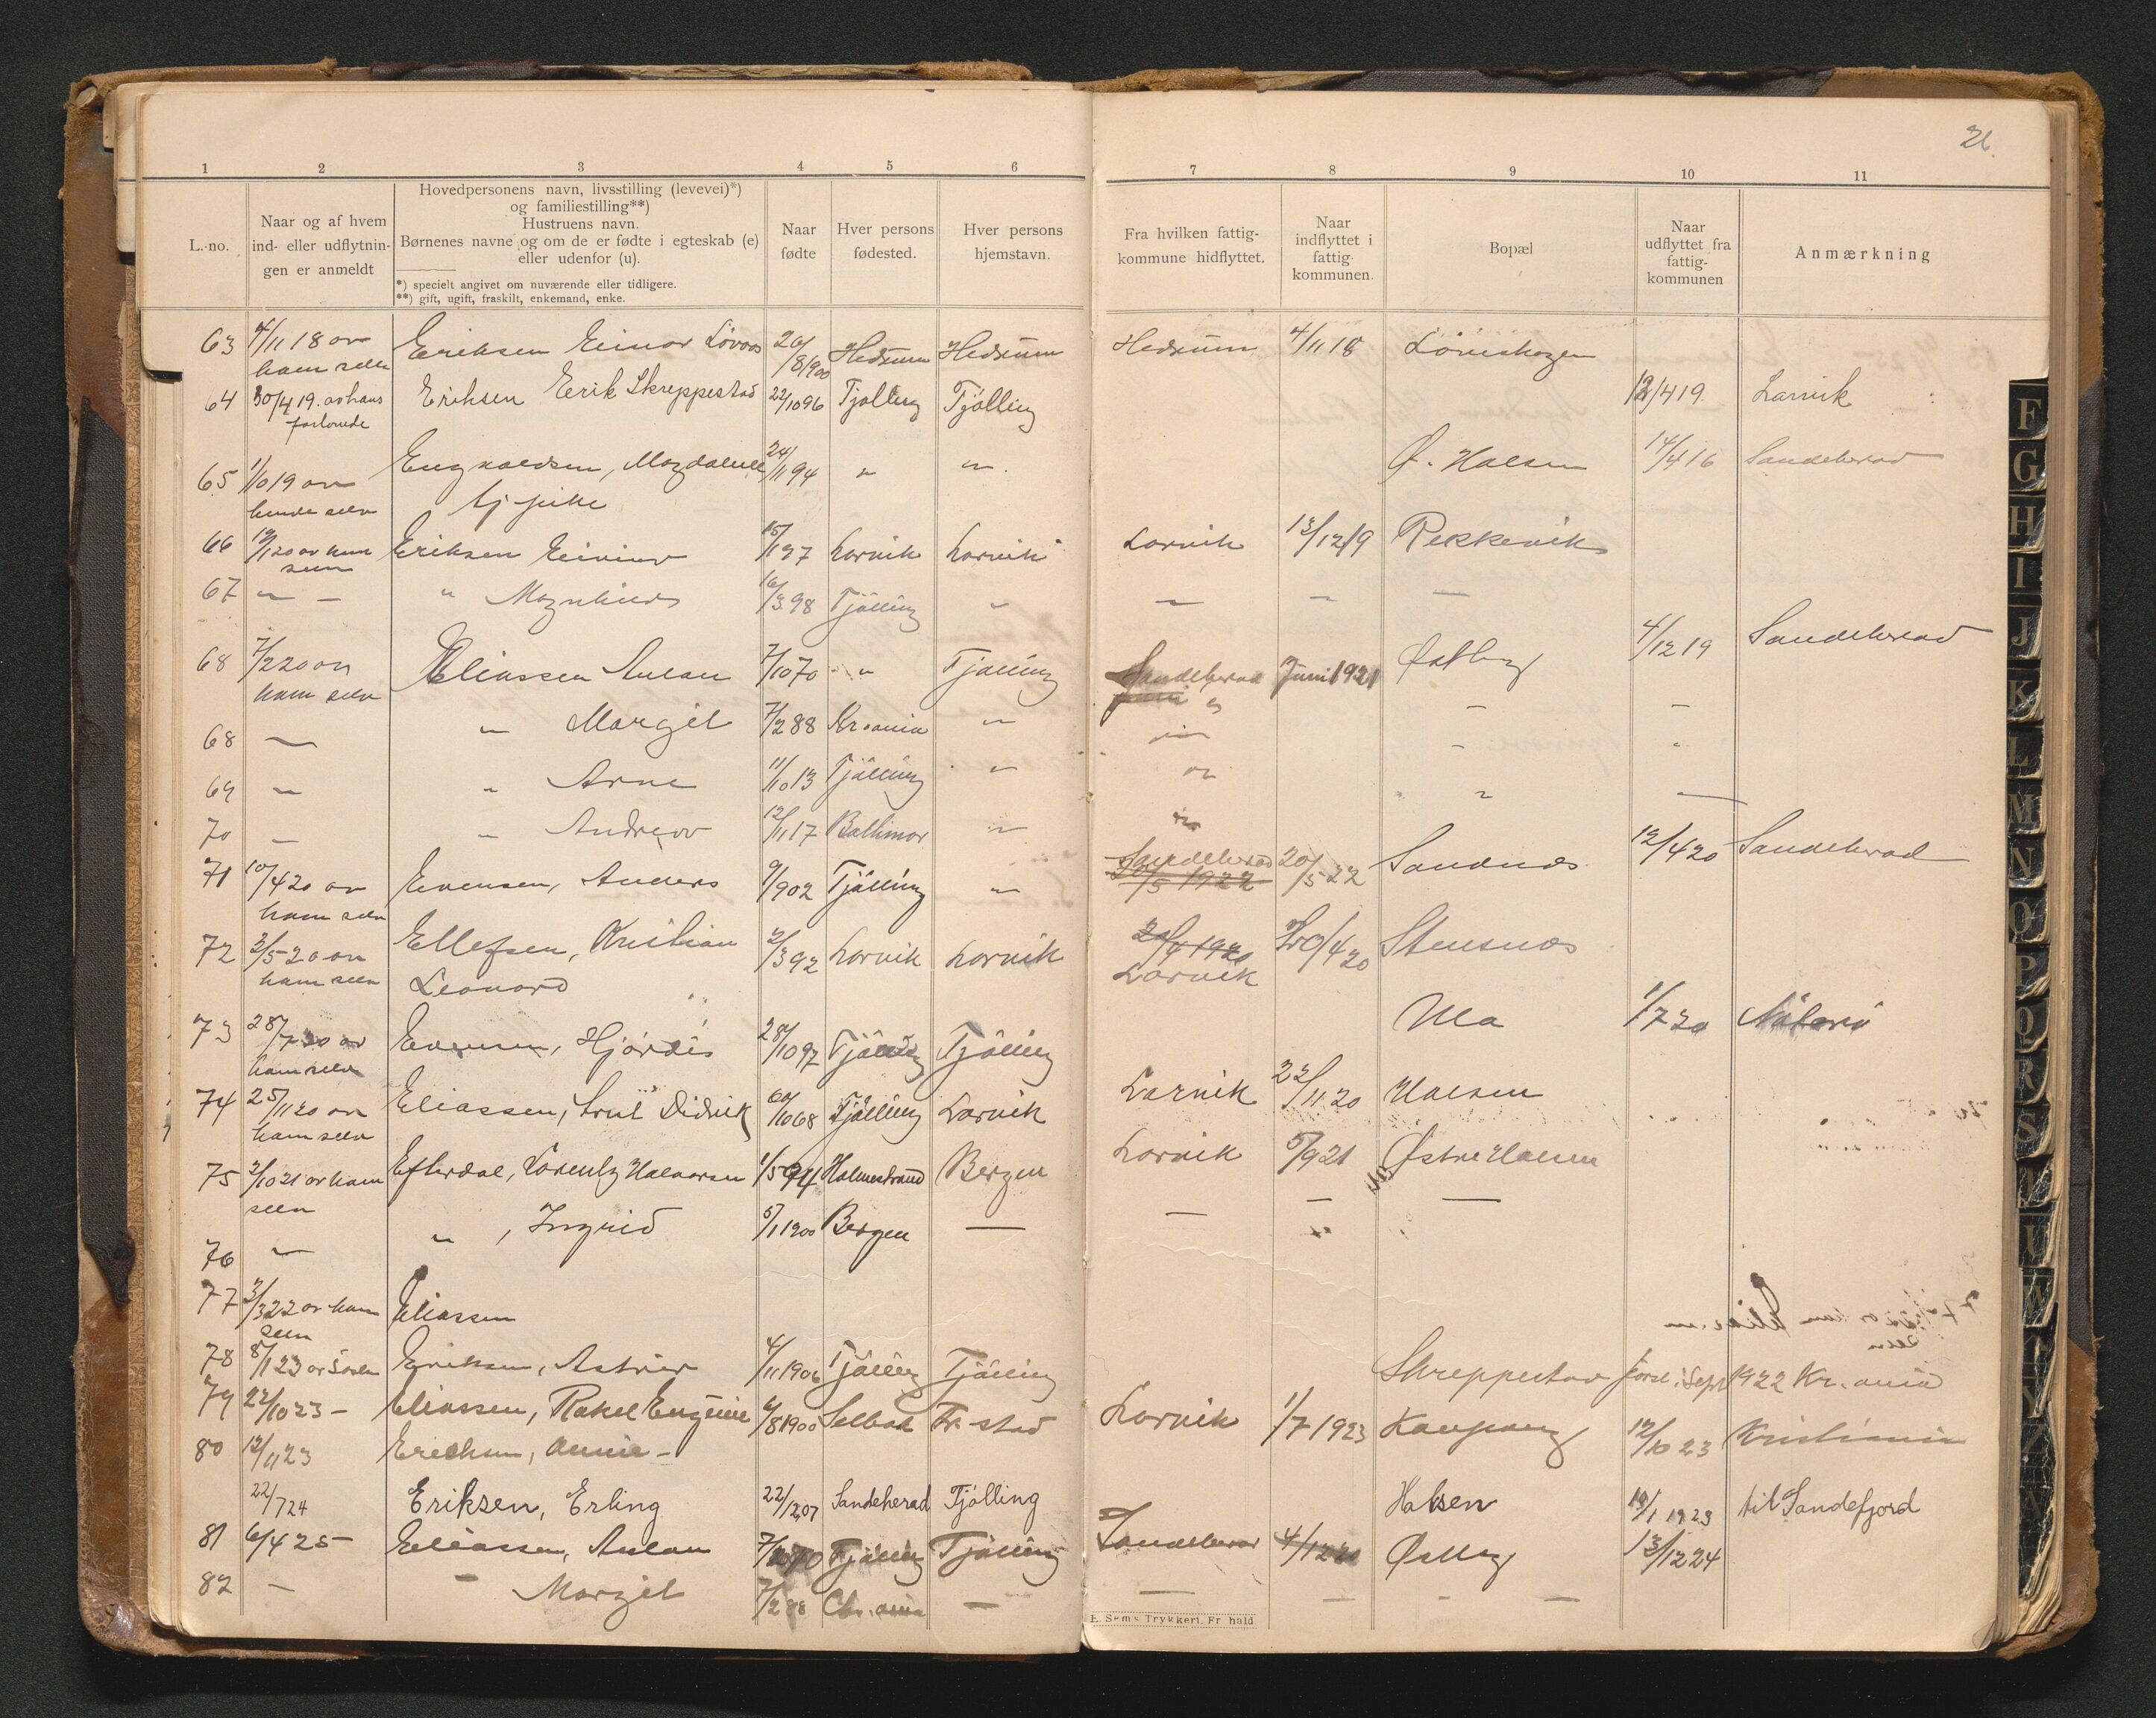 26.
1 2 3 4 5 6 7 8 9 10 11
L.-no.
Naar og af hvem
ind- eller udflytnin-
gen er anmeldt
Hovedpersonens navn, livsstilling (levevei)*)
og familiestilling**)
Hustruens navn.
Børnenes navne og om de er fødte i egteskab (e)
eller udenfor (u).
*) specielt angivet om nuværende eller tidligere.
**) gift, ugift, fraskilt, enkemand, enke.
Naar
fødte
Hver persons
fødested.
Hver persons
hjemstavn.
Fra hvilken fattig-
kommune hidflyttet.
Naar
indflyttet i
fattig-
kommunen.
Bopæl
Naar
udflyttet fra
fattig-
kommunen
Anmærkning
63 4/11 18 av Eriksen Einar Lövaas 26/8 1900 Hedrum Hedrum Hedrum 4/11 18 Löveskogen
ham selv
64 30/4 19. av hans Eriksen Erik Skreppestad 22/10 96 Tjølling Tjølling 12/4 19. Larvik
forlovede
65 1/10 19 av Engvaldsen, Magdalene 24/11 94 " " Ø. Halsen 14/4 16 Sandeherad
hende selv tj pike
66 12/1 20 av ham Eriksen Eivind 15/1 97 Larvik Larvik Larvik 13/12 19 Rekkevik
selv
67 " – " Magnhild 16/3 98 Tjölling " – – –
68 7/2 20 av Eliassen Anton 7/10 70 " Tjølling Sandeherad Juni 1921 Østby 4/12 19 Sandeherad
ham selv
68 – " Margit 7/2 88 Kr.ania " " – –
69 – " Arne 11/10 13 Tjölling " " – "
70 – " Andreas 12/11 17 Baltimor " " " –
71 10/4 20 av Evensen, Anders 9/9 02 Tjölling " Sandeherad 20/5 22 Sandnes 12/4 20 Sandeherad
ham selv 20/5 1922
72 3/5 - 20 av Ellefsen, Kristian 2/3 92 Larvik Larvik 20/4 1920 20/4 20 Stensnes
ham selv Leonard Larvik
73 28/7 20 av Evensen, Hjørdis 28/10 97 Tjölling Tjölling Ula 1/7 20 Nøterø
ham selv
74 25/11 20 av Eliassen, Didrik /10 68 Tjölling Larvik Larvik 22/11 20 Halsen
ham selv
75 3/10 21 av ham Efterdal, Lorentz Halvorsen 1/5 94 Holmestrand Bergen Larvik 5/9 21 Østre Halsen
selv
76 " " , Ingrid 5/1 1900 Bergen – – – –
77 3/3 22 av ham Eliassen
selv
78 8/1 23 av Eriksen, Astrid 4/11 1906 Tjölling Tjölling Skreppestad Sept 1922 Kr.ania
79 22/10 23 – Eliassen, Rakel Eugenie 6/8 1900 Selbak Fr.stad Larvik 1/7 1923 Kaupang 12/10 23 Kristiania
80 12/11 23 Eriksen, Annie –
22/7 24 Eriksen, Erling 22/12 07 Sandeherad Tjölling Halsen 19/1 1923 til Sandefjord
81 6/4 25 – Eliassen, Anton 7/10 70 Tjölling Tjölling Sandeherad Østby 13/12 24
82 – – Margit 7/2 88 Chr.ania – – – – –
E. Sems Trykkeri. Fr.hald
F
G
H
I
J
K
L
M
N
O
P
Q
R
S
T
U
W
Y
Z